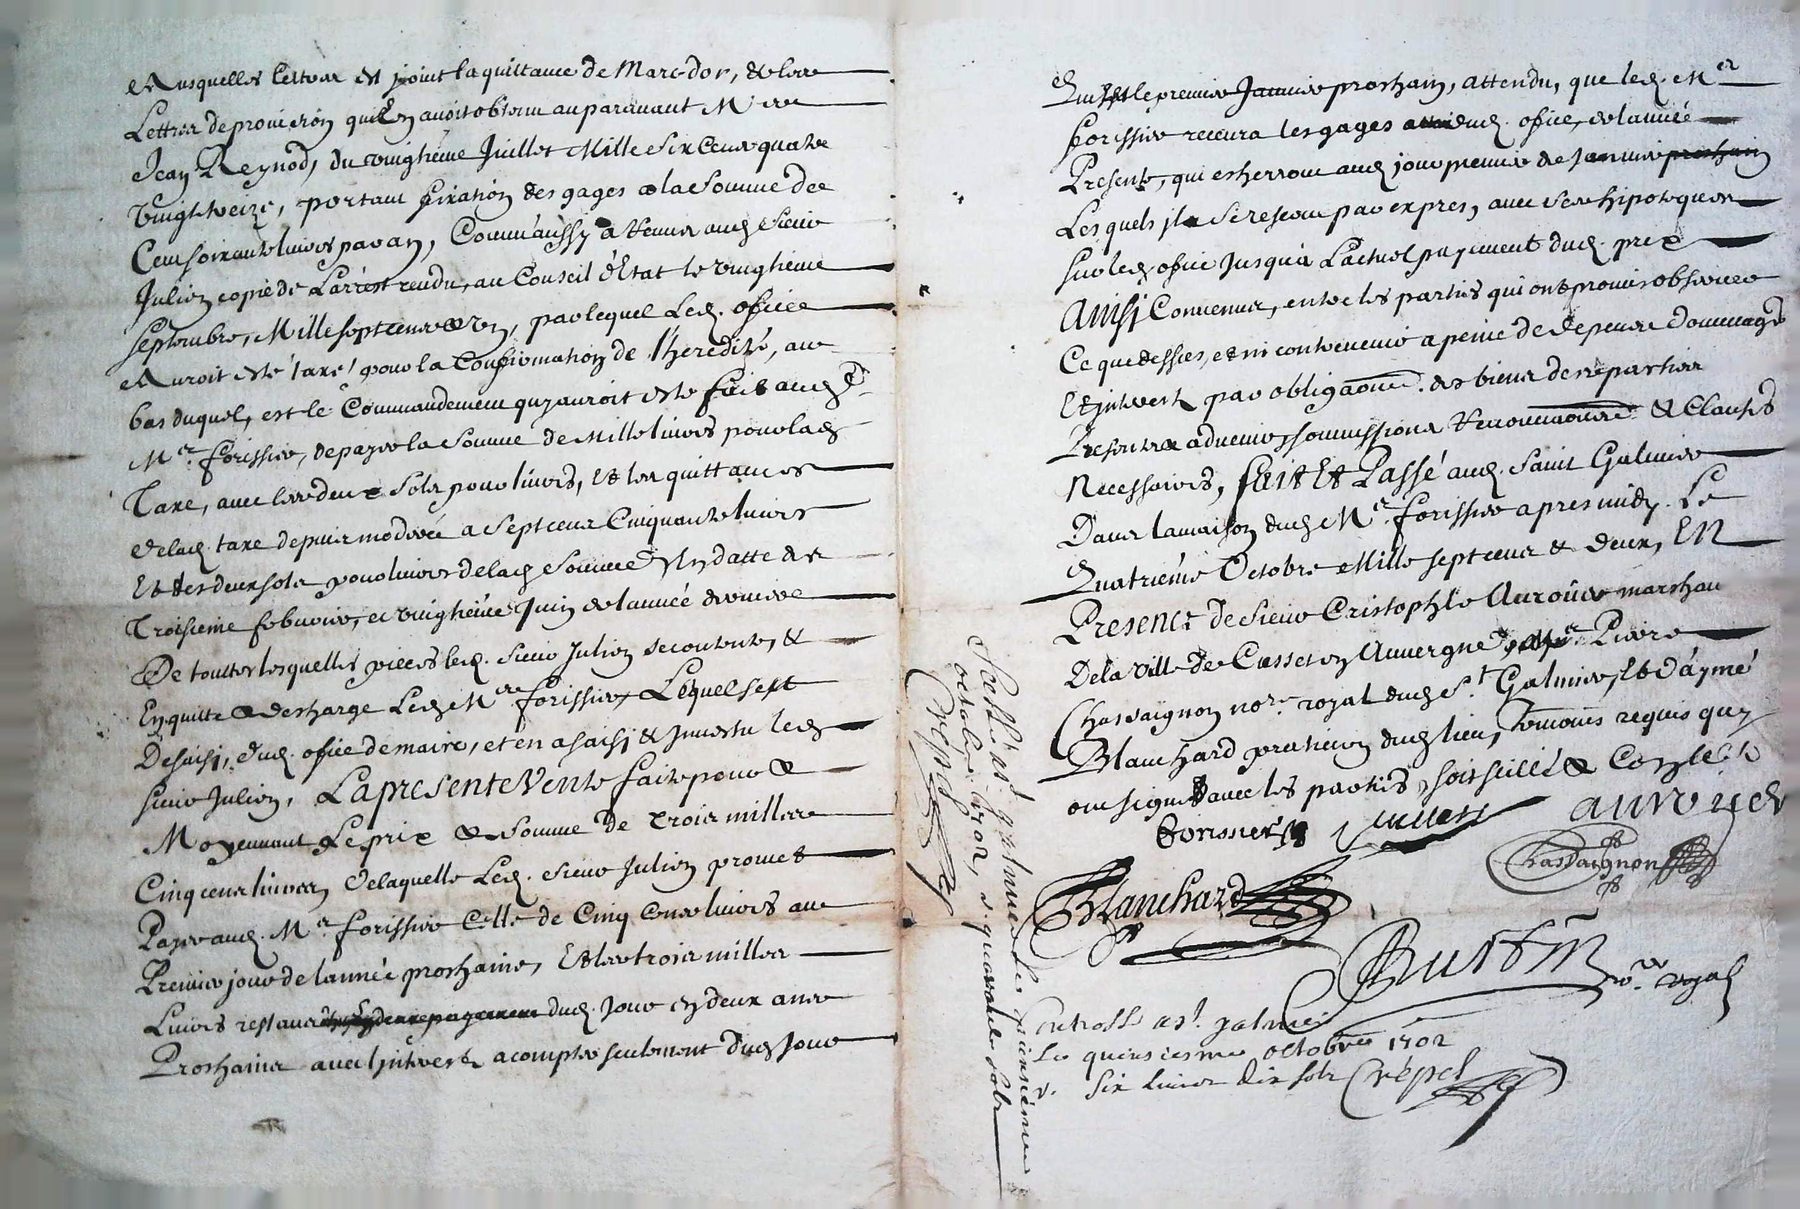 Ausquelles lettres est joint la quittance de Marc dor, & les
Lettres de provision quil en avoit obtenu auparavant Mre
Jean Reynod, du vingtieme Juillet Mille six cens quatre
vingt treize, portant fixation des gages a la somme de
Cent soixante livres par an, Comm'aussy a remis aud. sieur
Julien copie de L'arrest rendu, au Conseil d'Estat le vingtieme
Septembre, Mille sept cens & un, par lequel Led. office
Auroit esté taxé pour la Confirmation de l'heredité, au
bas duquel, est le Commandement quy auroit esté fait aud.
Mre. forissier, de payer la somme de Mille livres pour lad.
Taxe, avec les deux sols pour livres, Et les quittances
de lad. taxe depuis moderée a sept cens Cinquante livres
Et des deux sols pour livres de lad. somme En datte des
Troisieme febvrier, et vingtieme Juin de l'année derniere
De touttes lesquelles pieces led. sieur Julien se contente, &
En quitte & descharge Led. Mre forissier, Lequel s'est
Desaisi, dud. office de maire, et en a saisi & Investu led.
sieur Julien, La presente Vente faite pour &
Moyennant Le prix & somme de Trois milles
Cinq cens livres, de laquelle Led. sieur Julien promet
Payer aud. Mre forissier Celle de Cinq cens livres au
Premier jour de l'année prochaine, Et les trois milles
Livres restans dud. Jour en deux ans
Prochains avec Interest a compter seulement dud. Jour
le premier Janvier prochain, attendu, que led. Mre
forissier recevra les gages dud. office, de l'année
Presente, qui escherront aud. jour premier de Janvier prochain
Lesquels il se reserve par expres, avec ses hipoteques
sur led. office Jusqu'à L'actuel payement dud. prix
Ainsi Convenus, entre les parties qui ont promis observer
Ce que dessus, et ni contrevenir a peine de depens dommages
Et interest par obligaon. des biens desd. parties
Presents & advenir, soumissions Renonciaons. & Clauses
Necessaires, fait Et Passé aud. Saint Galmier
Dans la maison dud. Mre. forissier apres midy. Le
Quatriéme Octobre Mille sept cens & deux, EN
Presence de sieur Cristophle Aurouer marchan
De la Ville de Cusset en Auvergne Pierre
Chassaignon nore. royal dud. St. Galmier, Et d'aymé
Blanchard praticien dud. lieu, temoins requis quy
ont signé avec les parties, soit scellé & Conllé
forissier Jullien aurouer
Chassaignon
Blanchard
Bustin
nore. royal
Scellé a st. galmier le quinsiéme
octobre 1702, r. quarante sols
Crepel
Controllé a st. galmier
Le quinsiesme octobre 1702
r. six livres dix sols Crépel